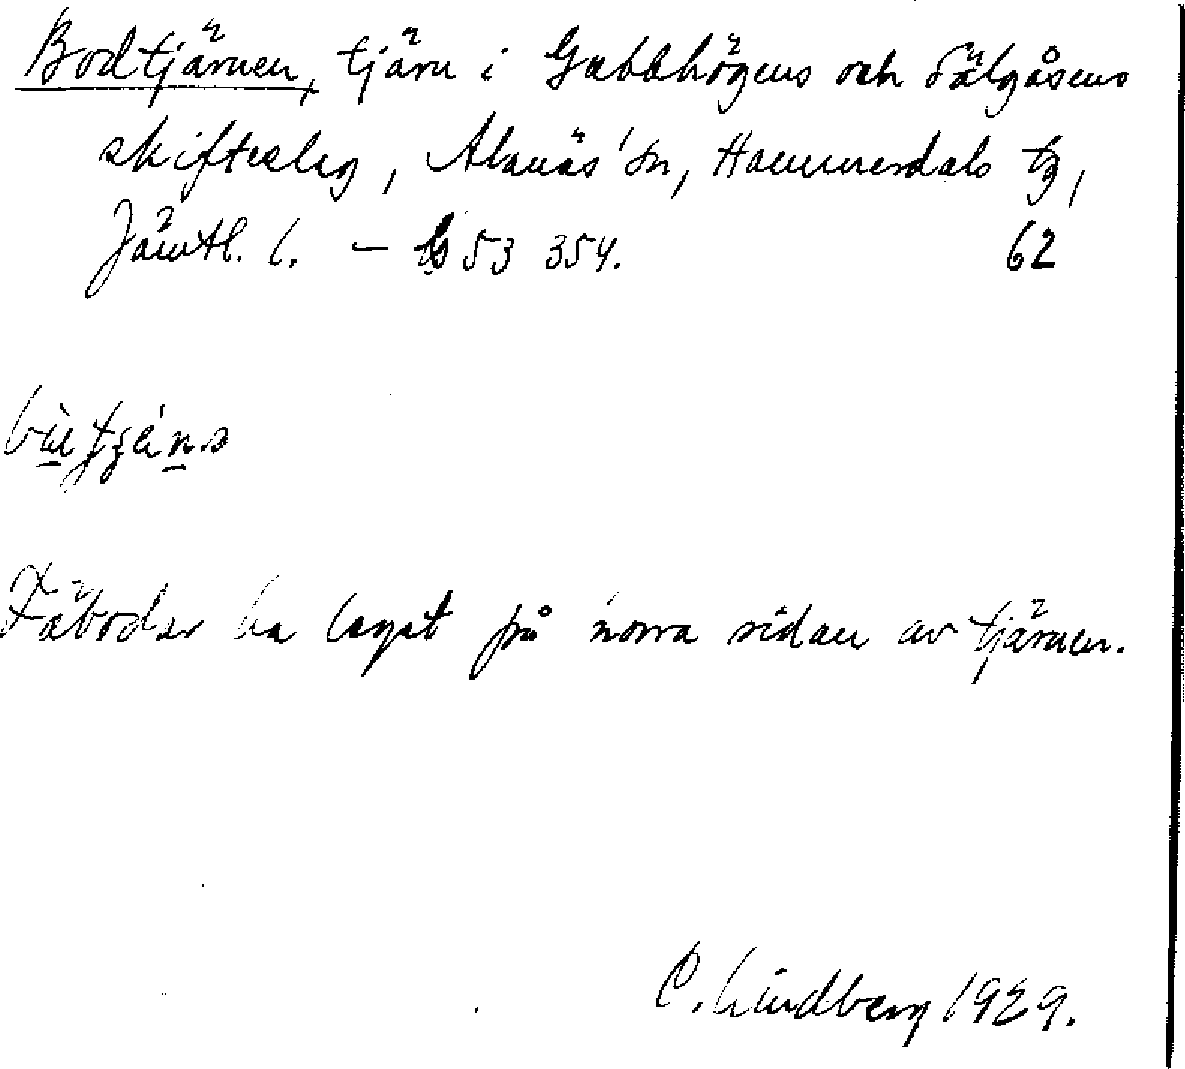 Bodtjärnen, tjärn i Gubbhögens och Sälgåsens
skifteslag, Alanäs sn, Hammerdals tg,
Jämtl. l. – 53 354. 62
Fäbodar ha legat på norra sidan av tjärnen.
C. Lindberg 1929.